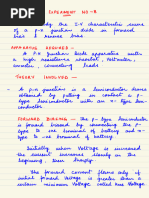 EXPERIMENT NO-8
To study the I-V characteristic curve
of a p-n junction diode in forward
bias & reverse bias
APPARATUS REQUIRED -
A p-n junction diode apparatus with
a high resistance rheostat, Voltmeter,
Ammeter, connecting leads
THEORY INVOLVED -
A p-n junction diode is a semiconductor device
obtained by putting in contact a p-
type semiconductor with an n-type Semi-
conductor.
FORWARD BIASING - The p-type Semiconductor
is forward biased by connecting the p-
type to +ve terminal of battery and n-
type to -ve terminal of battery.
Initially when Voltage is increased
the current increases slowly in the
beginning then sharply.
The forward current flows only if
initial forward Voltage is equal to a certain
minimum Voltage called Knee Voltage